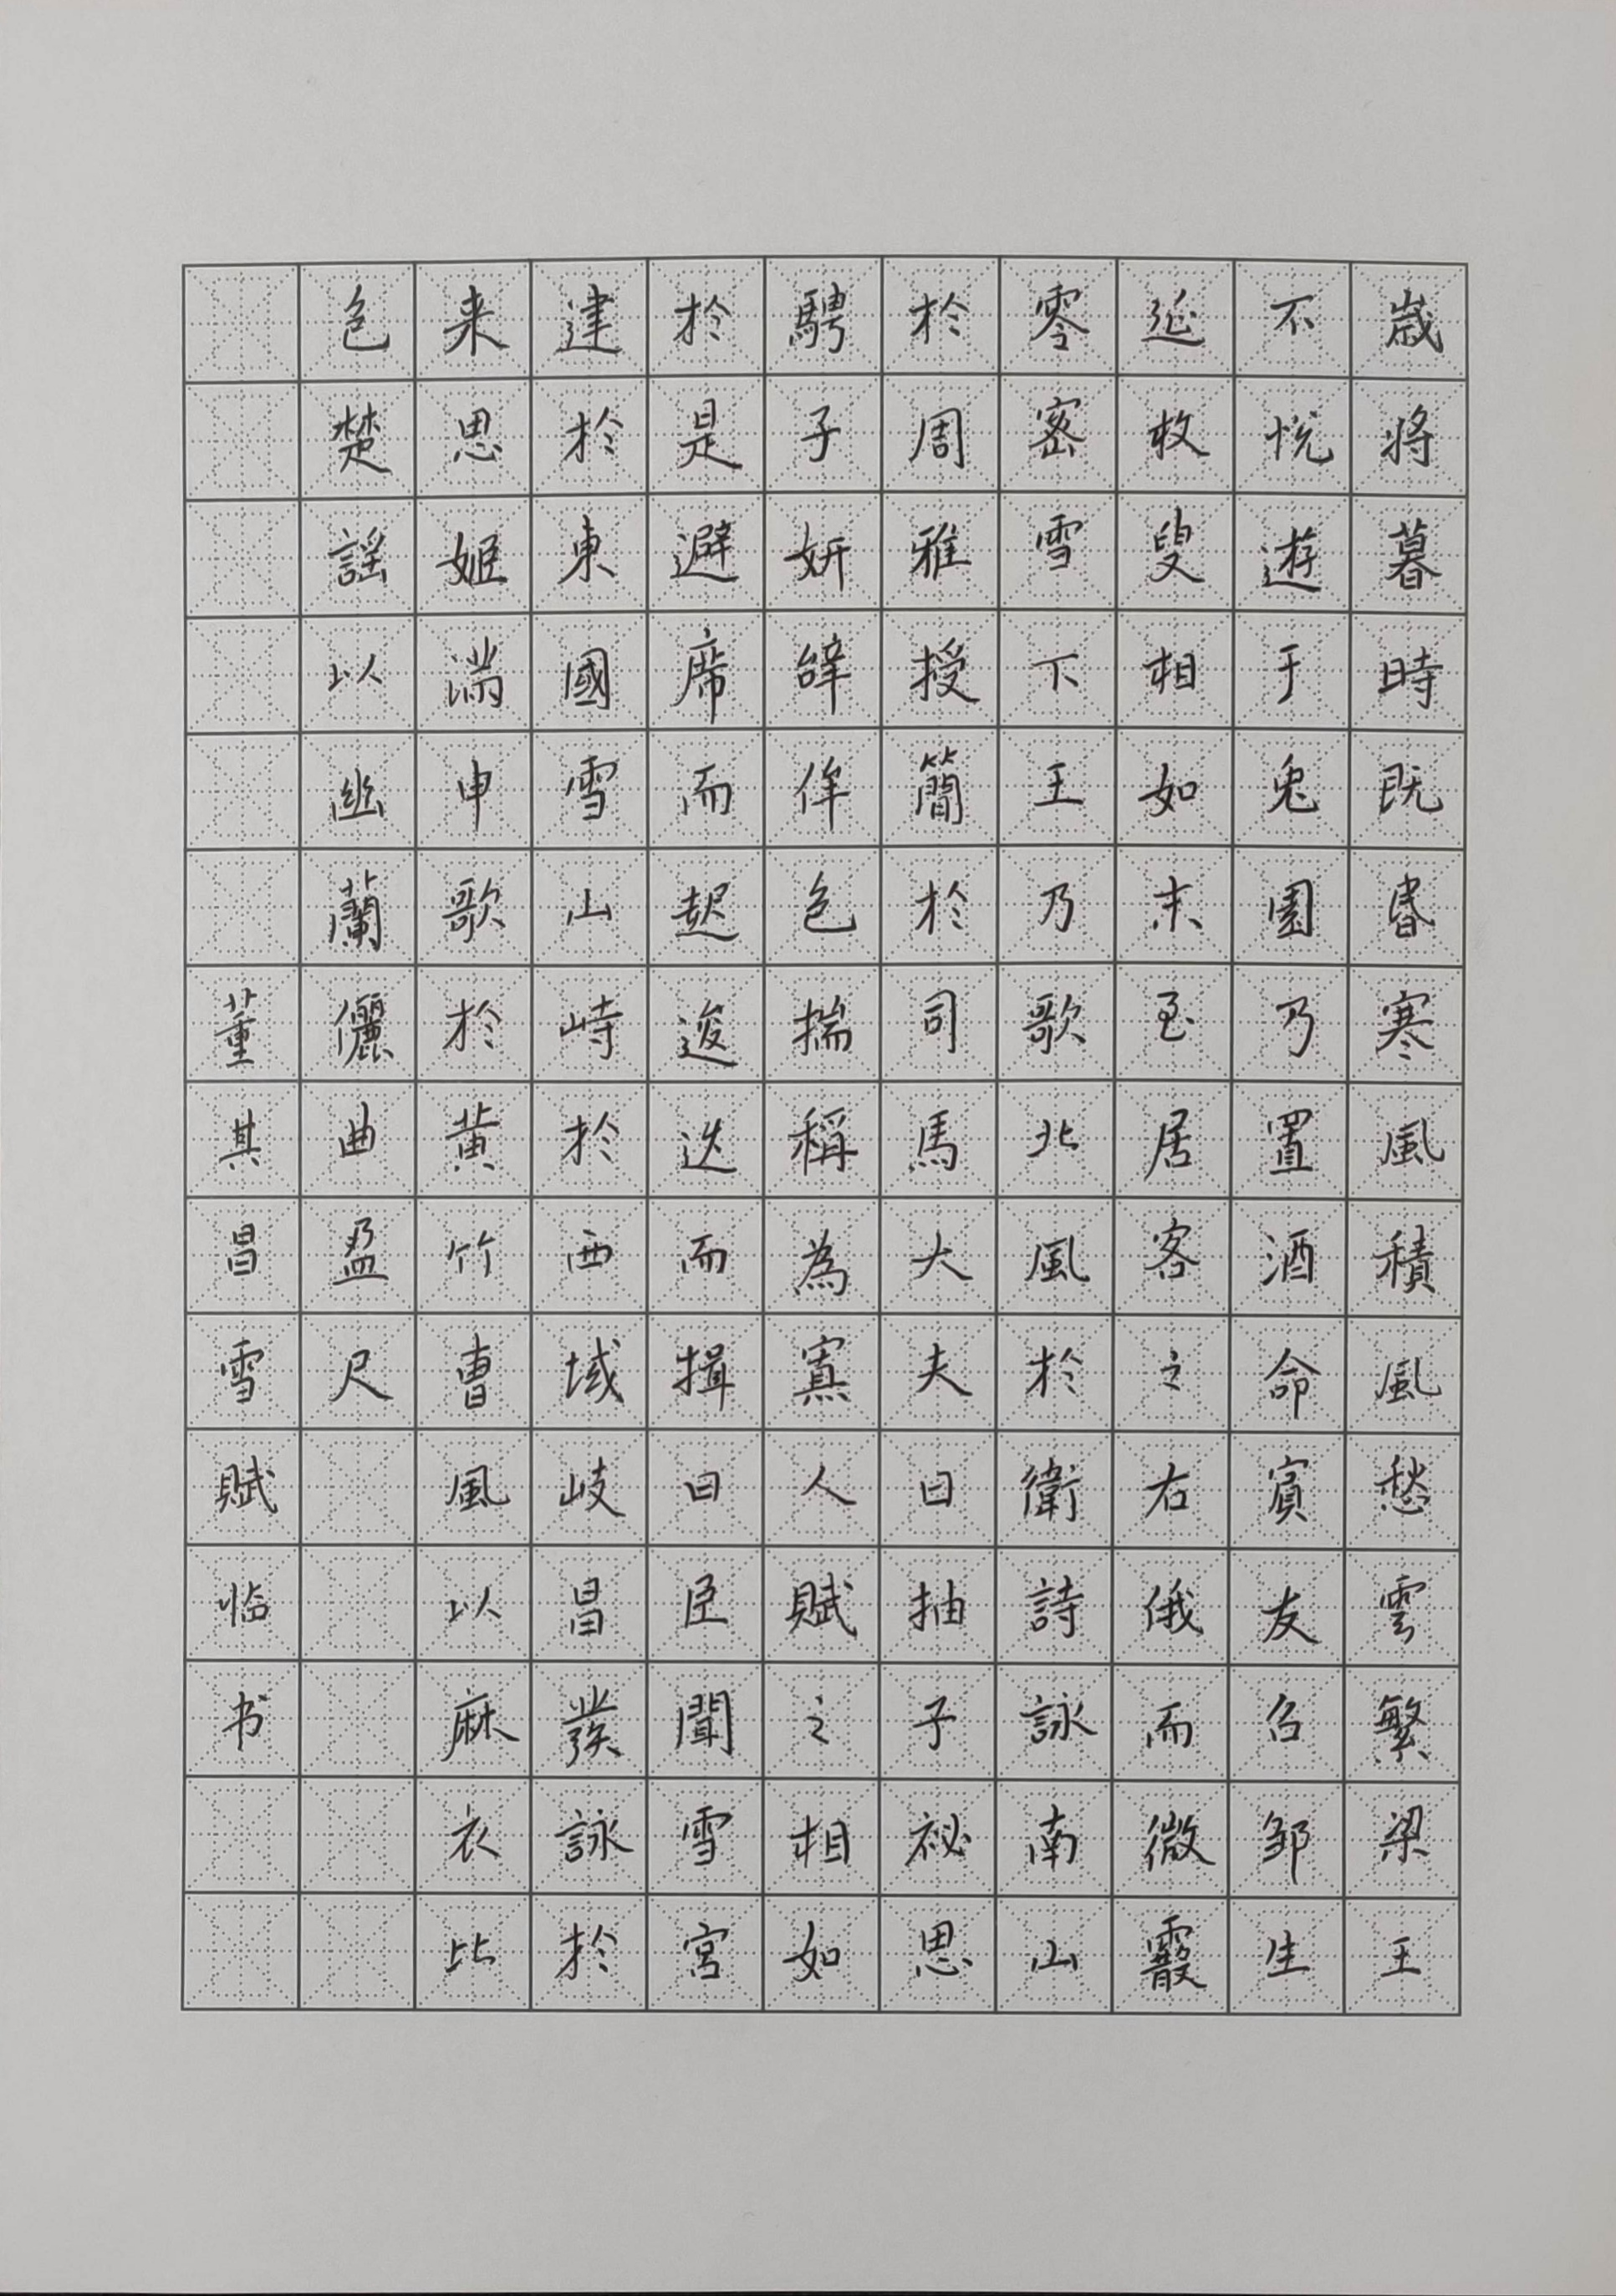 歲將暮時既昏寒風積風愁雲繁梁王
不悅遊于兔園乃置酒命賓友召邹生
延枚叟相如末至居客之右俄而微霰
零密雪下王乃歌北風於衛詩詠南山
於周雅授簡於司馬大夫曰抽子祕思
騁子妍辭侔色揣稱為寡人賦之相如
於是避席而起逡迭而揖曰臣聞雪宮
建於東國雪山峙於西域岐昌發詠於
来思姬滿申歌於黃竹曹風以麻衣比
色楚謠以幽蘭儷曲盈尺
董其昌雪賦临书